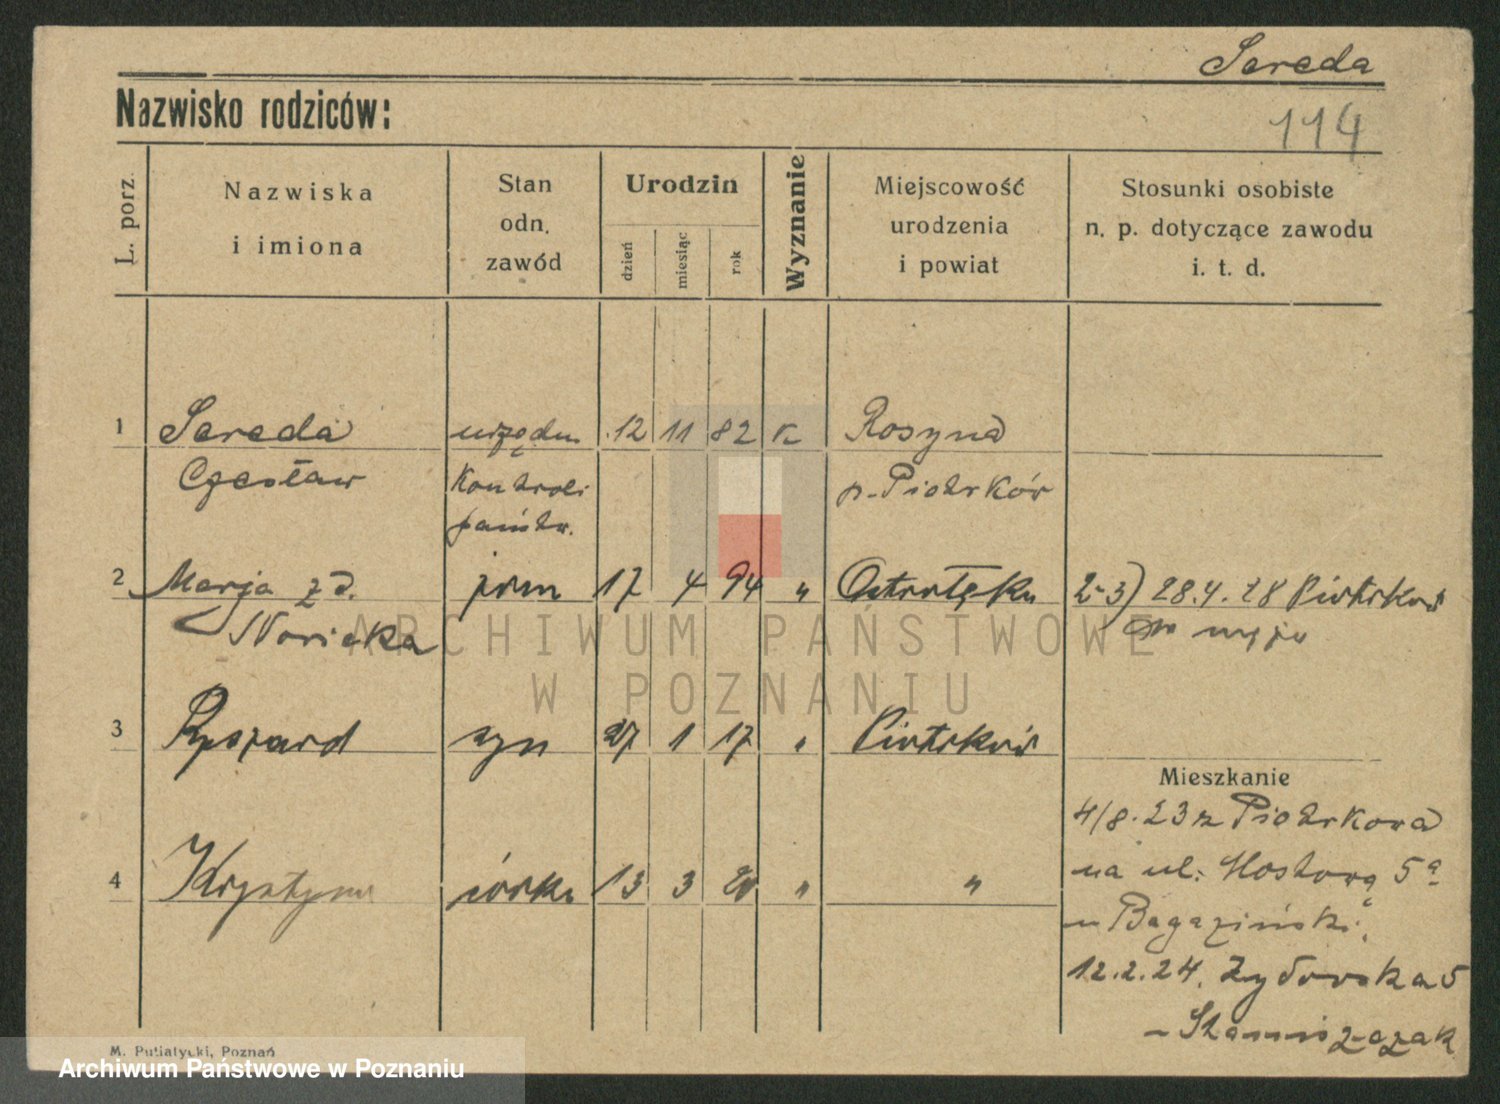 Sereda
Nazwisko rodziców:
114
L. porz.
Nazwiska
i imiona
Stan
odn.
zawód
Urodzin
dzień
miesiąc
rok
Wyznanie
Miejscowość
urodzenia
i powiat
Stosunki osobiste
n. p. dotyczące zawodu
i. t. d.
1 Sereda urzędn 12 11 82 K Rosyna
Czesław Kontroli p. Piotrków
państw.
2 Marja z d. żona 17 4 94 " Ostrołęka 2-3) 28.4.28 Piotrków
Noricka męża
3 Ryszard syn 27 1 17 " Piotrków
Mieszkanie
4/8.23 z Piotrkowa
4 Krystyna córka 13 3 20 " "
na ul: Mostową 5a
u Bagaziński
12.2.24. Żydowska 5
- Stanniszczak
M. Putiatycki, Poznań
ARCHIWUM PAŃSTWOWE
W POZNANIU
Archiwum Państwowe w Poznaniu